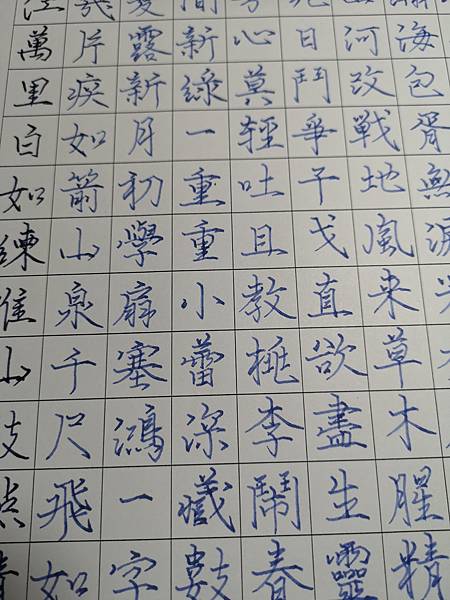 江萬里白如練淮山
幾片疾如箭山泉千尺飛如
變露新月初學扇塞鴻一字
間新綠一重重小蕾深藏數
芳心莫輕吐且教桃李鬧春
日鬥爭干戈直欲盡生靈
山河改戰地風来草木腥精
海包胥無淚